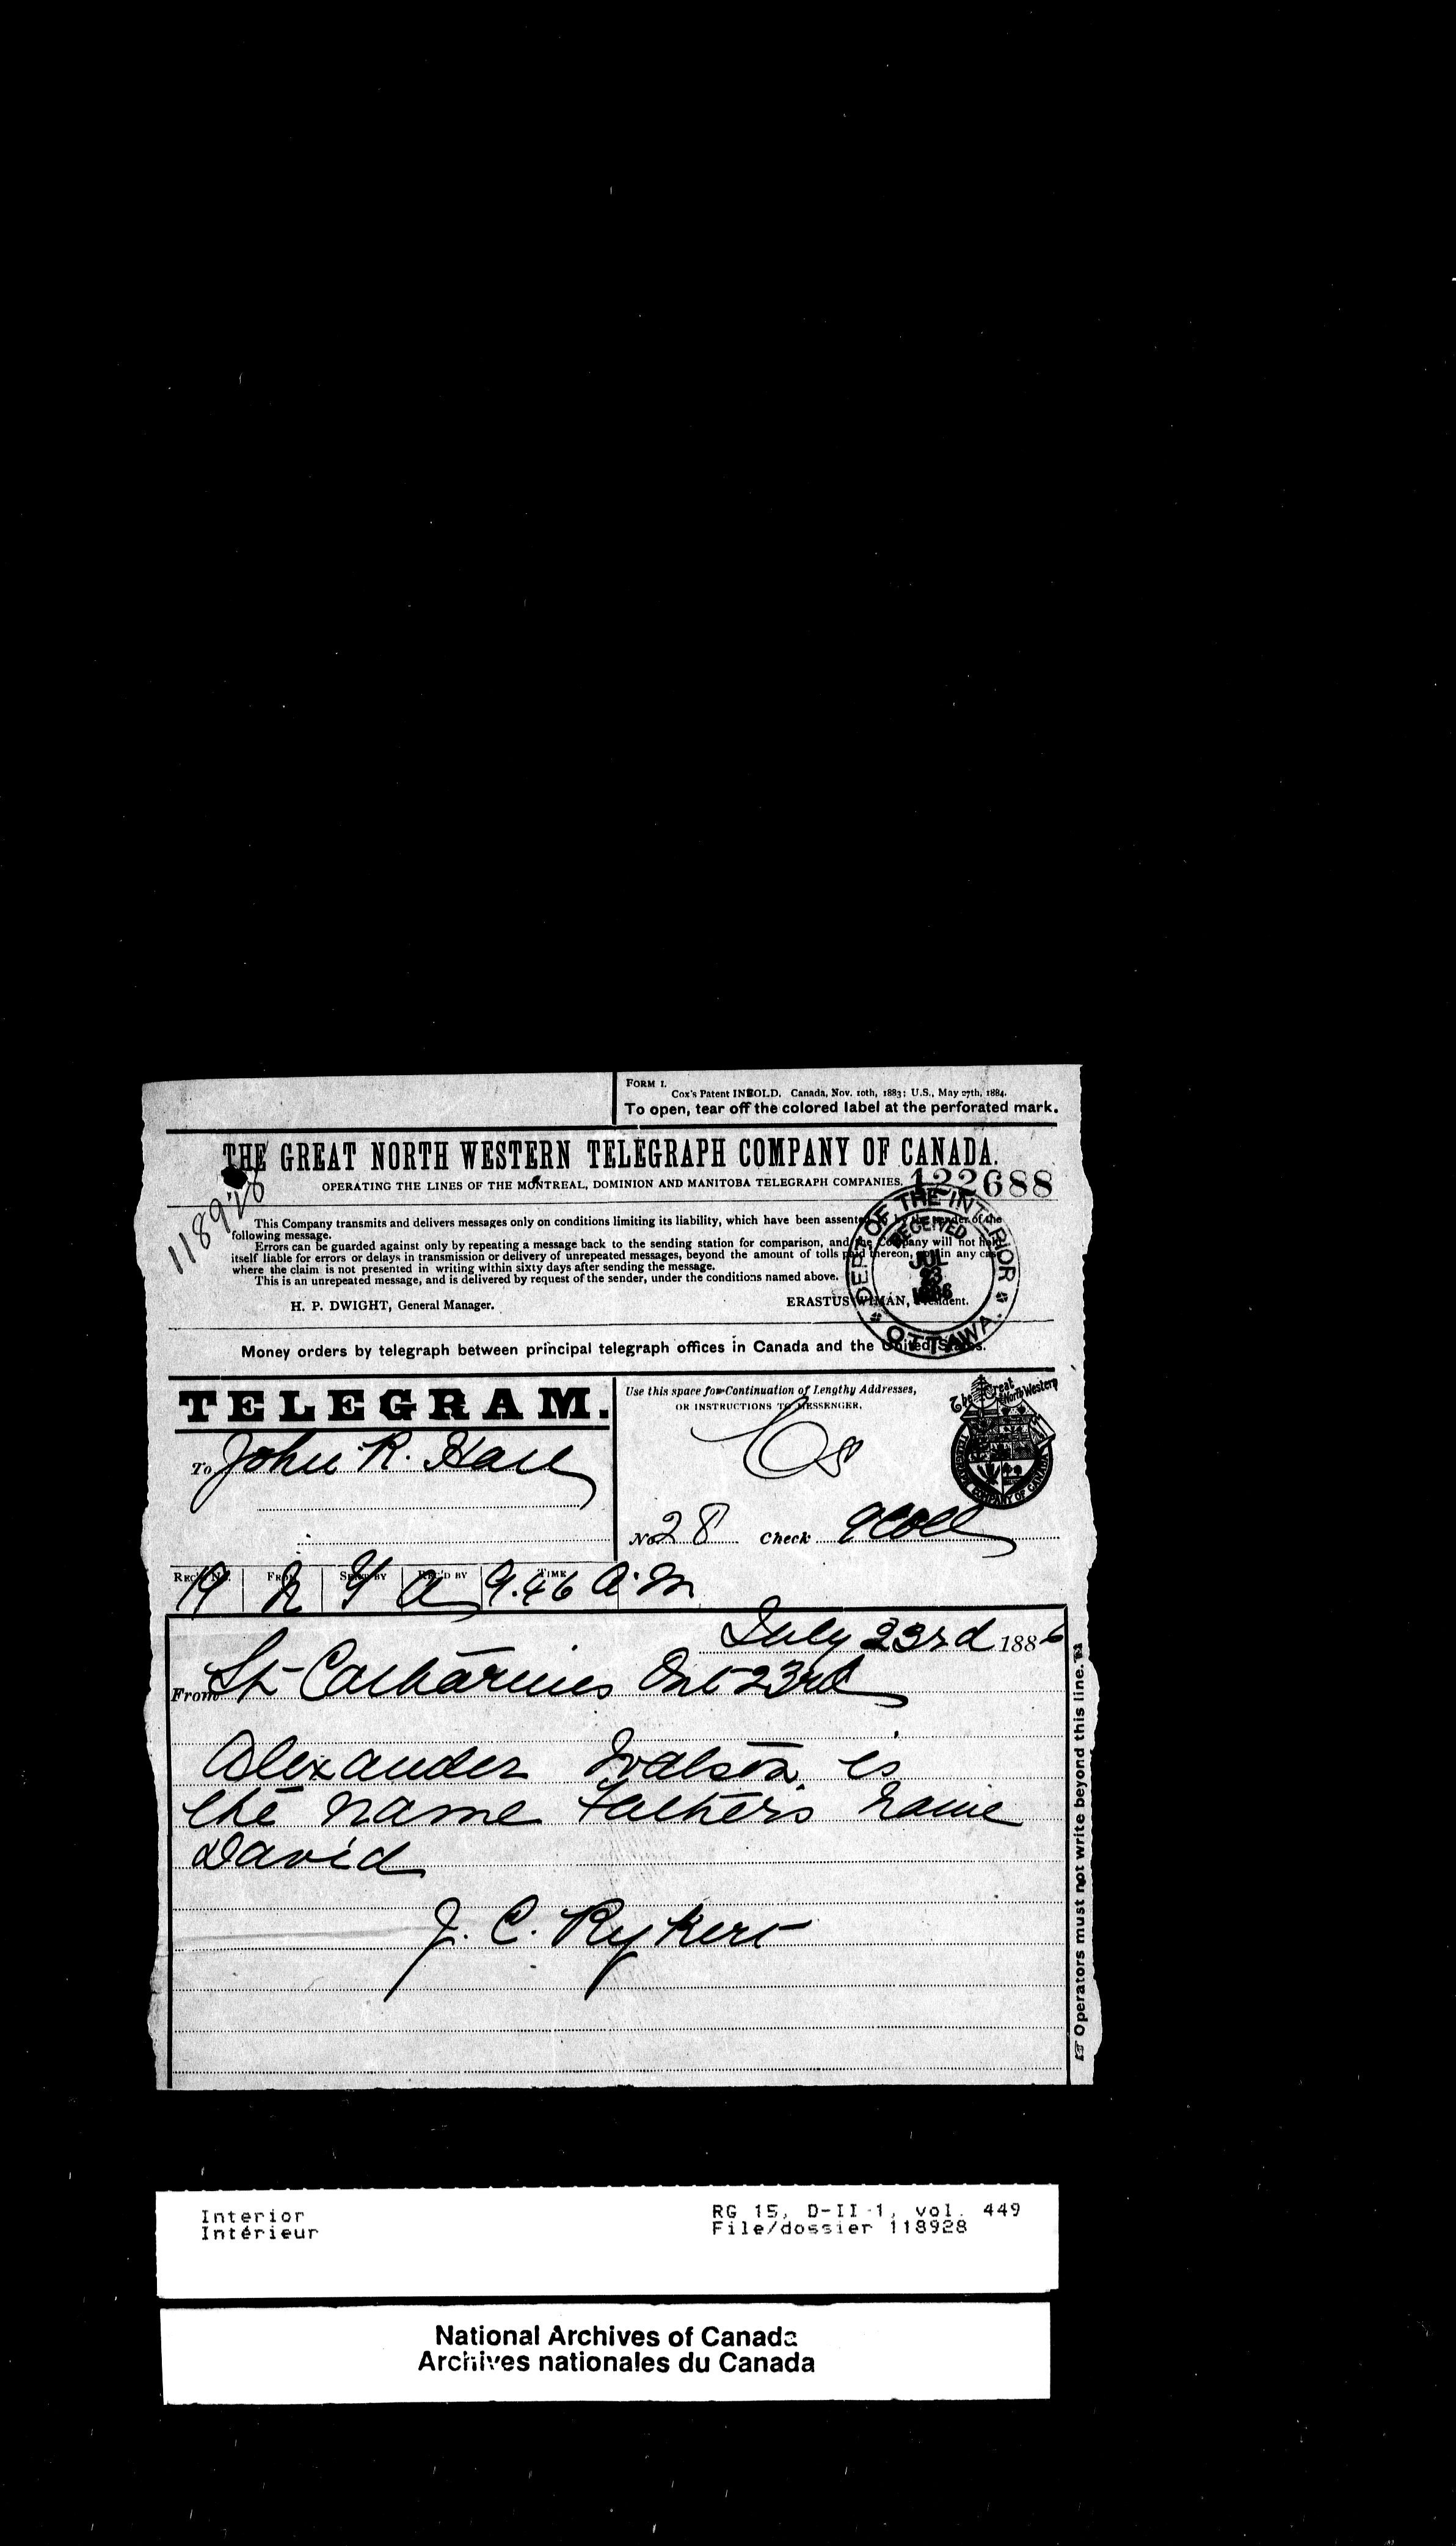 FORM 1.
Cox's Patent INFOLD. Canada, Nov. 10th, 1883; U.S., May 27th, 1884.
To open, tear off the colored label at the perforated mark.
THE GREAT NORTH WESTERN TELEGRAPH COMPANY OF CANADA.
OPERATING THE LINES OF THE MONTREAL, DOMINION AND MANITOBA TELEGRAPH COMPANIES.
122688
118928
This Company transmits and delivers messages only on conditions limiting its liability, which have been assented to by the sender of the
following message.
Errors can be guarded against only by repeating a message back to the sending station for comparison, and the Company will not hold
itself liable for errors or delays in transmission or delivery of unrepeated messages, beyond the amount of tolls paid thereon, nor in any case
where the claim is not presented in writing within sixty days after sending the message.
This is an unrepeated message, and is delivered by request of the sender, under the conditions named above.
H. P. DWIGHT, General Manager.
ERASTUS WIMAN, President.
DEPT OF THE INTERIOR
RECEIVED
JUL
23
1886
OTTAWA
Money orders by telegraph between principal telegraph offices in Canada and the United States.
TELEGRAM.
Use this space for Continuation of Lengthy Addresses,
OR INSTRUCTIONS TO MESSENGER.
The Great North Western
TELEGRAPH COMPANY OF CANADA
To John R. Hall
No 28 Check
REC'D No. FROM SENT BY REC'D BY TIME
19 9.46 a.m
July 23rd 1886
From St Catharines Ont 23rd
Alexander Watson is
the name Father's name
David
J. C. Rykert
Operators must not write beyond this line.
Interior
Intérieur
RG 15, D-II-1, vol. 449
File/dossier 118928
National Archives of Canada
Archives nationales du Canada